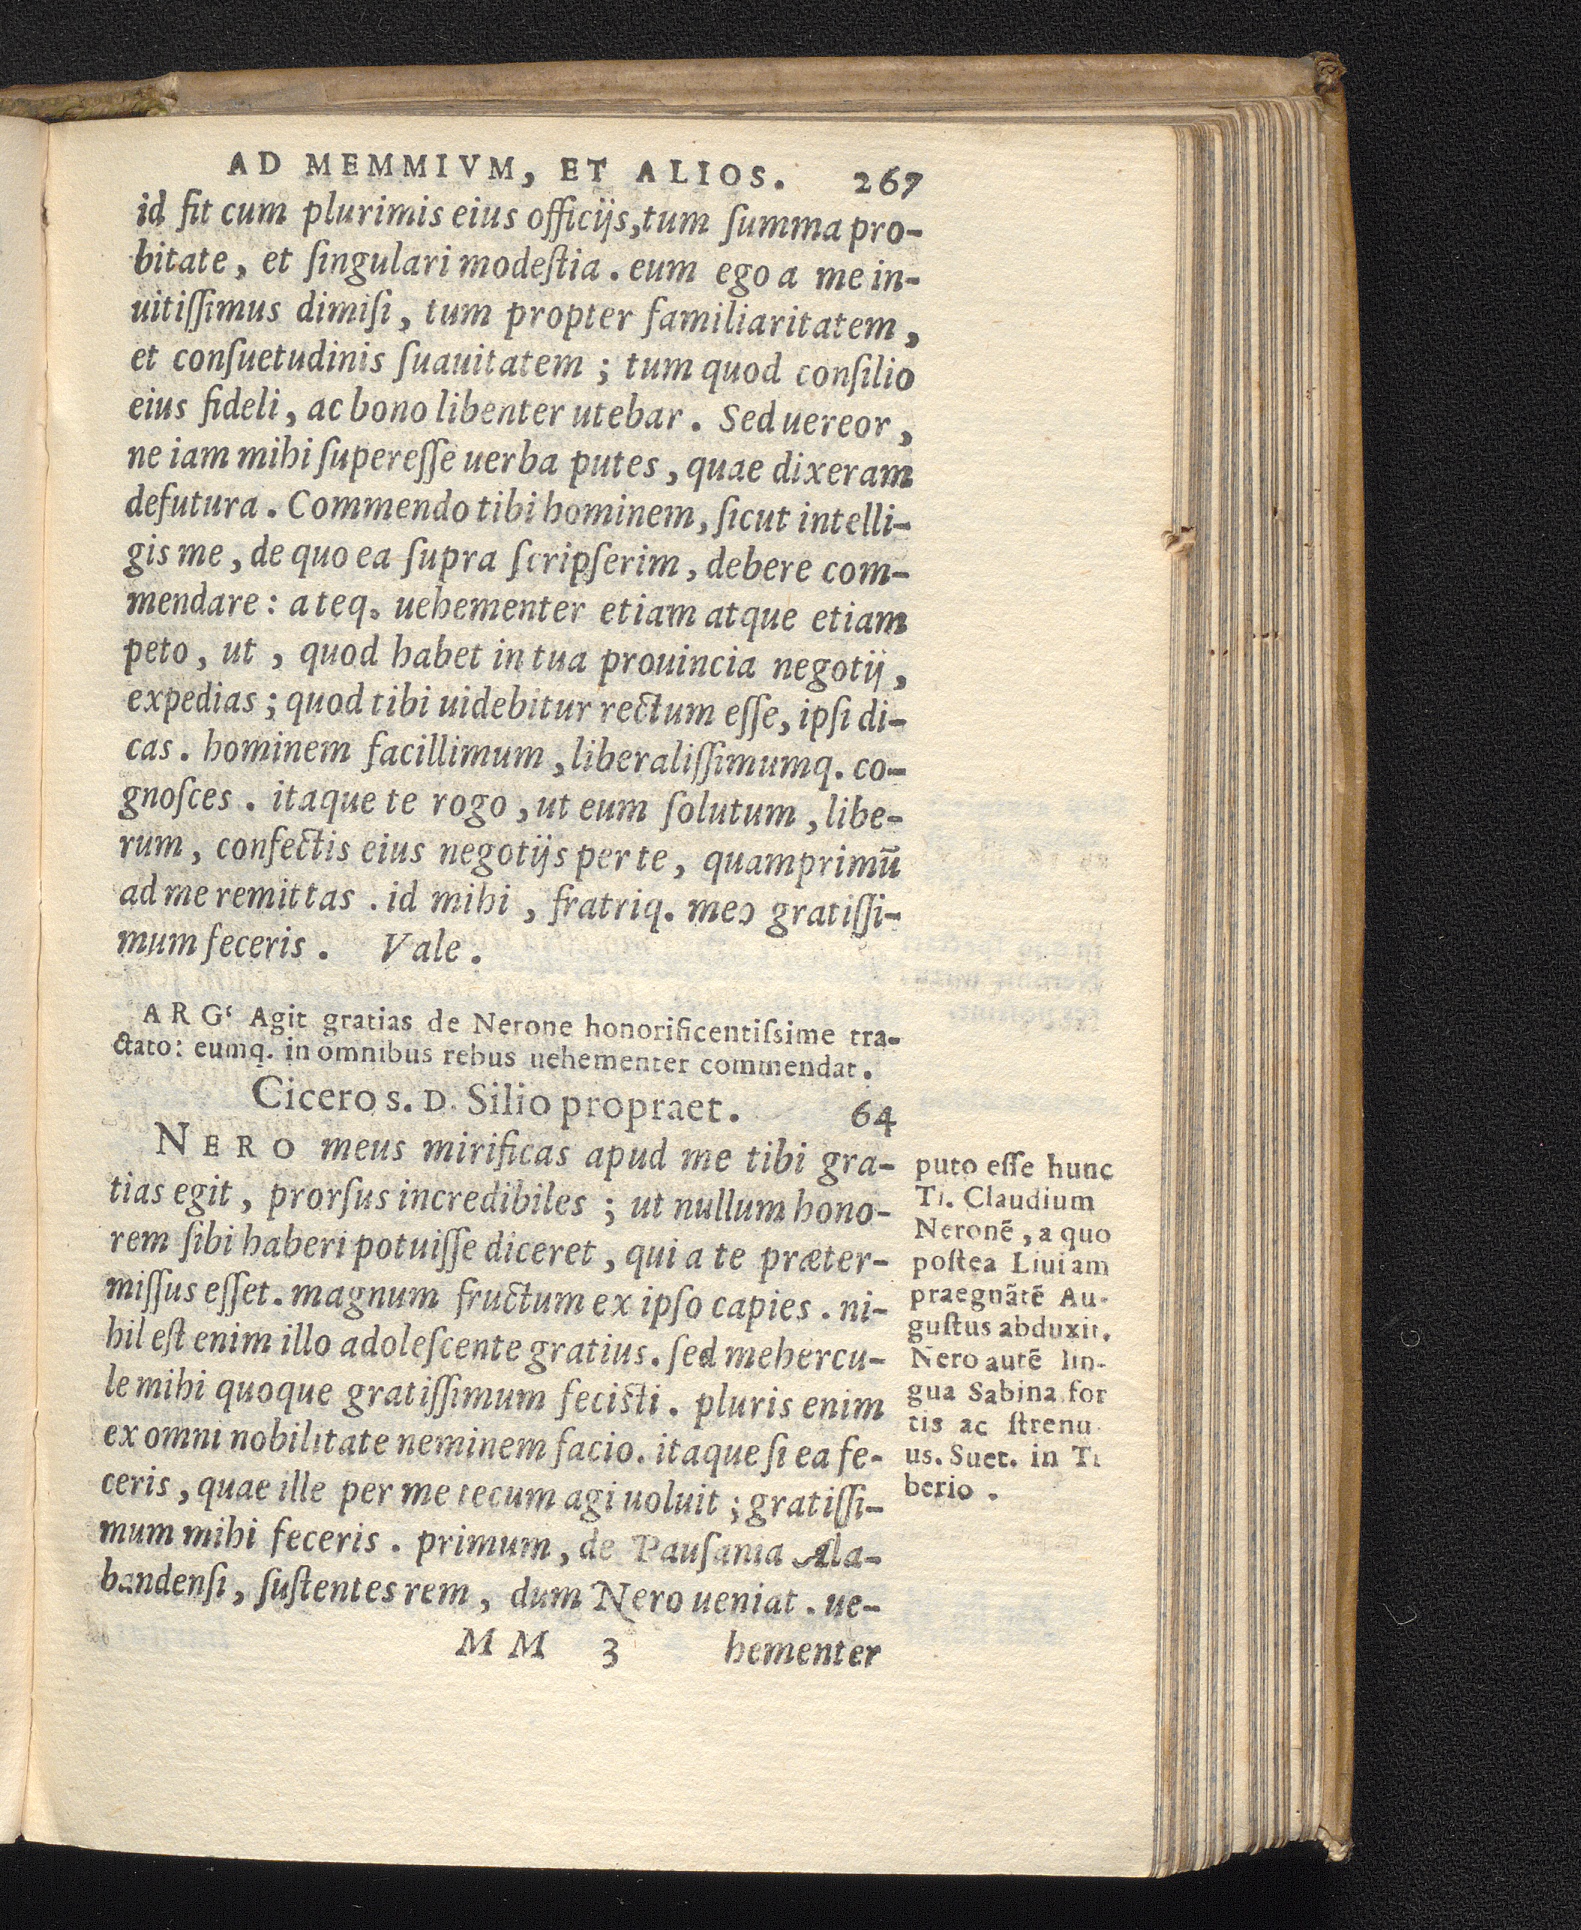 AD MEMMIVM, ET ALIOS. 267
id fit cum plurimis eius officijs, tum ſumma pro-
bitate, et ſingulari modeſtia. eum ego a me in-
uitiſſimus dimiſi, tum propter familiaritatem,
et conſuetudinis ſuauitatem; tum quod conſilio
eius fideli, ac bono libenter utebar. Sed uereor,
ne iam mihi ſupereſſe uerba putes, quae dixeram
defutura. Commendo tibi hominem, ſicut intelli-
gis me, de quo ea ſupra ſcripſerim, debere com-
mendare: a teq. uehementer etiam atque etiam
peto, ut, quod habet in tua prouincia negotij,
expedias; quod tibi uidebitur rectum eſſe, ipſi di-
cas. hominem facillimum, liberaliſſimumq. co-
gnoſces. itaque te rogo, ut eum ſolutum, libe-
rum, confectis eius negotijs per te, quamprimū
ad me remittas. id mihi, fratriq. meo gratiſſi-
mum feceris. Vale.
ARG‘ Agit gratias de Nerone honorificentiſsime tra-
ctato: eumq. in omnibus rebus uehementer commendat.
Cicero s. D. Silio propraet. 64
NERO meus mirificas apud me tibi gra-
tias egit, prorſus incredibiles; ut nullum hono-
rem ſibi haberi potuiſſe diceret, qui a te præter-
miſſus eſſet. magnum fructum ex ipſo capies. ni-
hil eſt enim illo adoleſcente gratius. ſed mehercu-
le mihi quoque gratiſſimum feciſti. pluris enim
ex omni nobilitate neminem facio. itaque ſi ea fe-
ceris, quae ille per me tecum agi uoluit; gratiſſi-
mum mihi feceris. primum, de Pauſania Ala-
bandenſi, ſuſtentes rem, dum Nero ueniat. ue-
MM 3 hementer
puto eſſe hunc
Ti. Claudium
Neronē, a quo
poſtea Liuiam
praegnātē Au-
guſtus abduxit.
Nero autē lin-
gua Sabina for
tis ac ſtrenu
us. Suet. in Ti
berio.